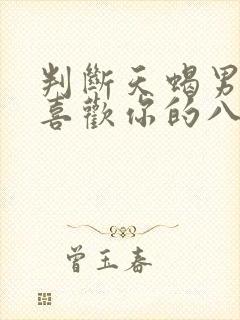 判斷天蝎男
喜歡你的八
曾玉春